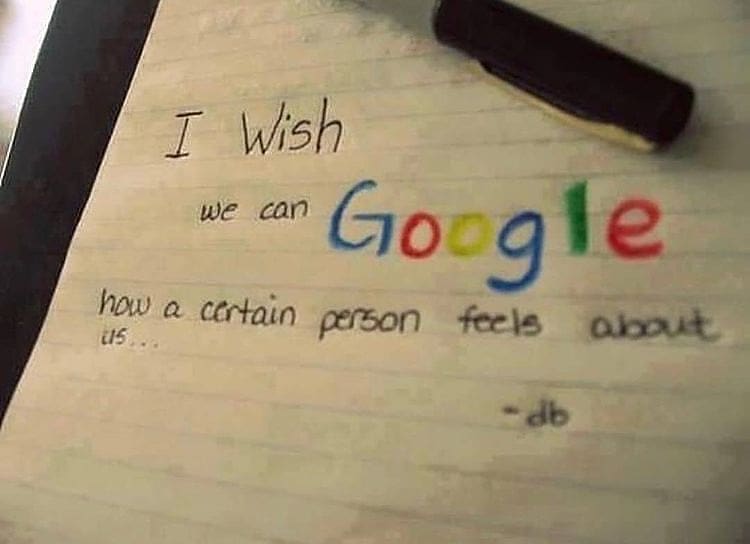 I Wish
we can Google
how a certain person feels about
us...
-db